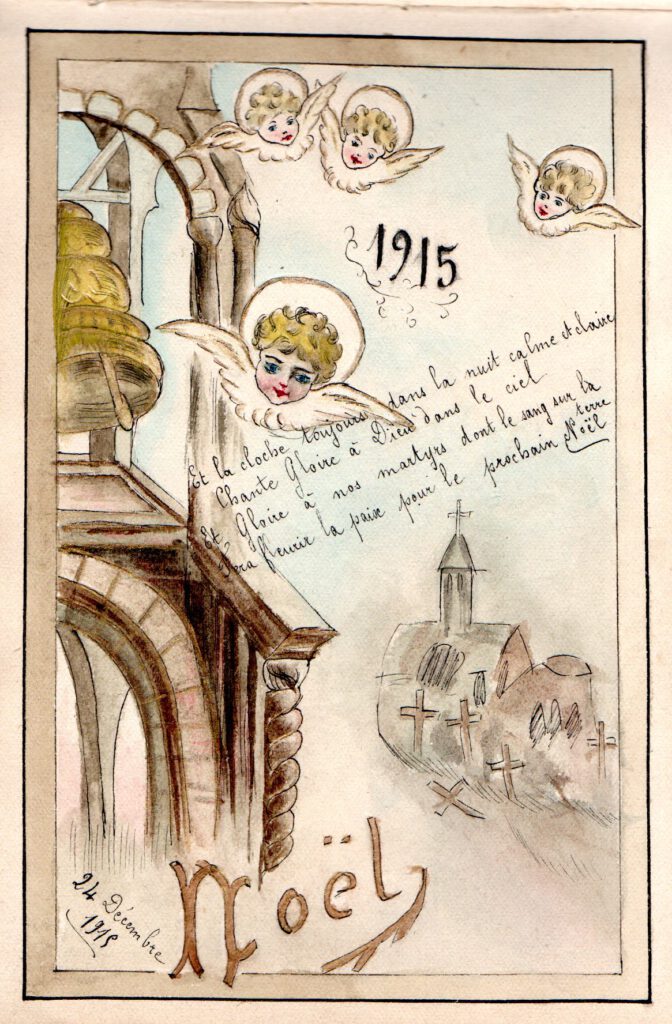 1915
Et la cloche toujours dans la nuit calme et claire
Chante Gloire à Dieu dans le ciel
Et Gloire à nos martyrs dont le sang sur la terre
Fera fleurir la paix pour le prochain Noël
Noël
24 Décembre
1915